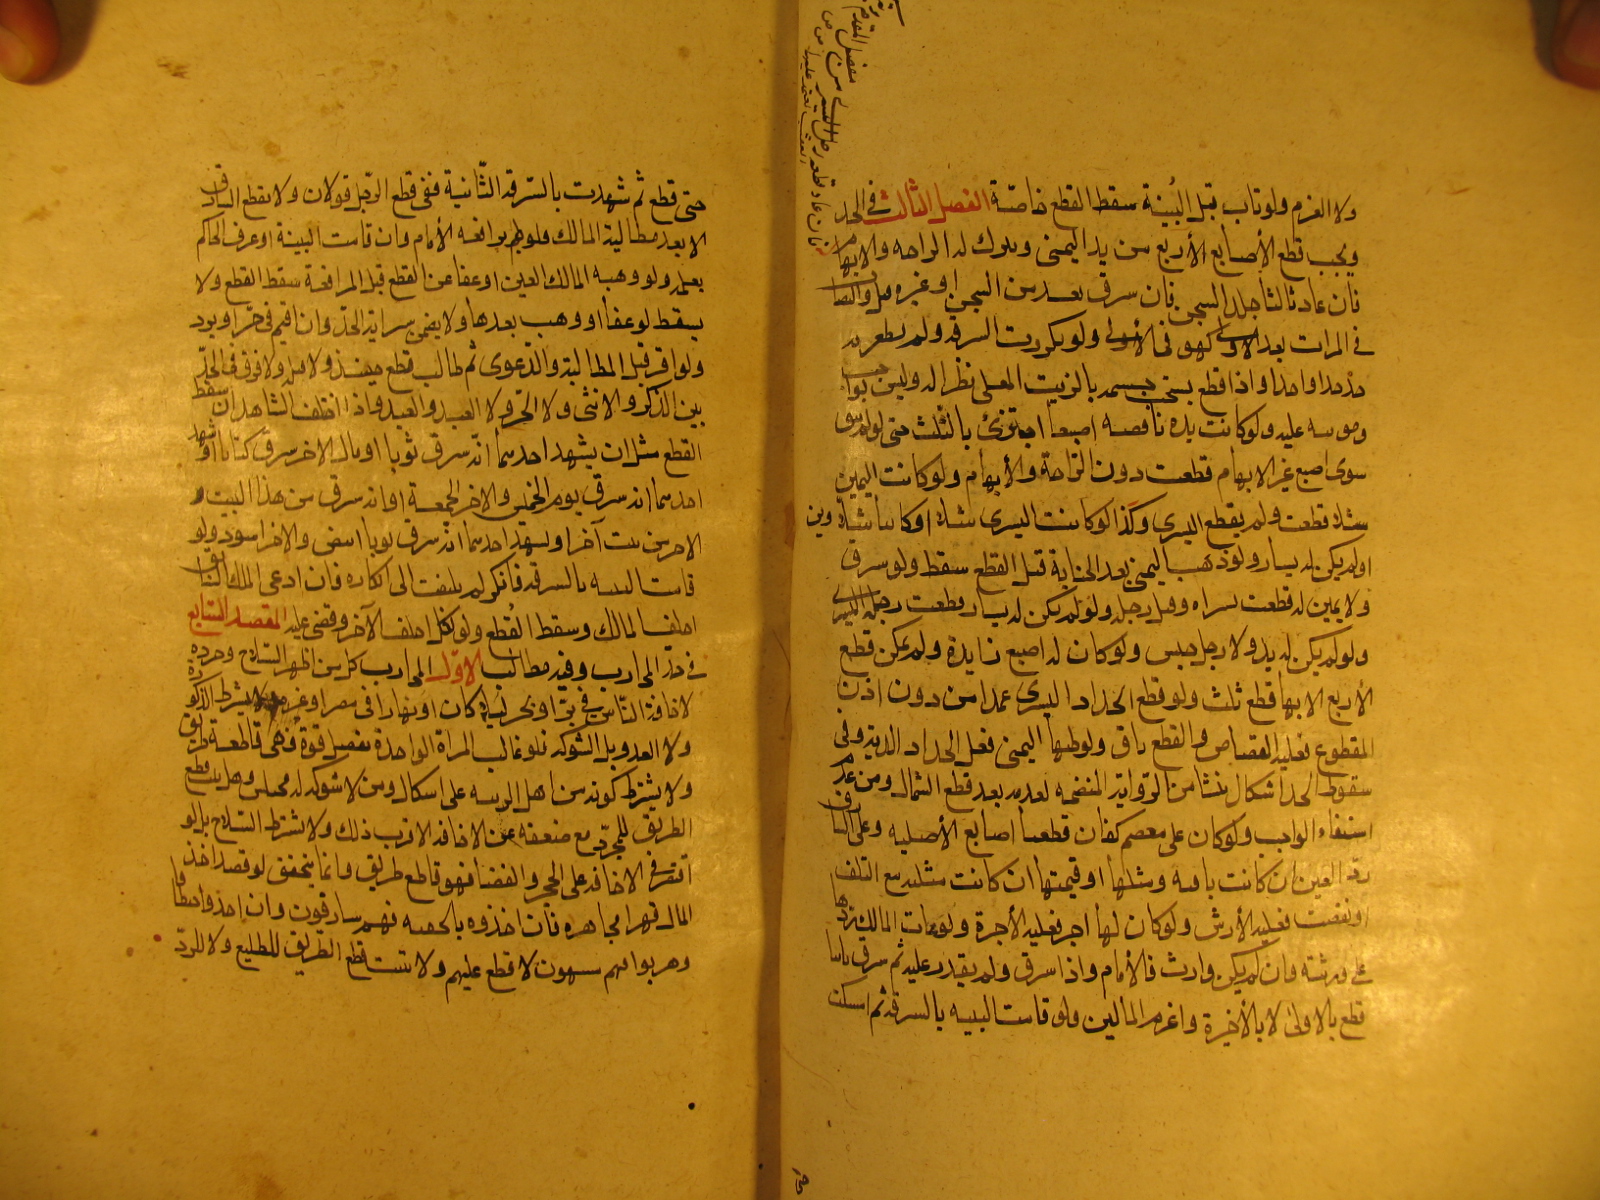 ولا الغرم ولو تاب قبل البينة سقط القطع خاصّة الفصل الثالث في الحد
ويجب قطع الأصابع الأربع من يد اليمنى ويترك له الراحة والابهام
فان عاد ثالثا خلد السجن فان سرق بعد من السجن او غيره قتل والنصاب
في المرات بعد الاولى كهو في الأولى ولو تكررت السرقة ولم يقطع
حدّ حدا واحدا واذا قطع يستحب حسمه بالزيت المغلى نظرا له وليس بواجب
ومؤنته عليه ولو كانت يده ناقصة اصبعا اجتزئ بالثلث حتى لو لم يبق
سوى اصبع غير الابهام قطعت دون الراحة والأبهام ولو كانت اليمين
شلاء قطعت ولم يقطع اليسرى وكذا لو كانت اليسرى شلاء او كانتا شلاوين
او لم يكن له يسار ولو ذهب اليمنى بعد الجناية قبل القطع سقط ولو سرق
ولا يمين له قطعت يسراه وقيل رجله ولو لم يكن له يسار قطعت رجله اليسرى
ولو لم يكن له يد ولا رجل حبس ولو كان له اصبع زايدة ولم يمكن قطع
الأربع الا بها قطع ثلث ولو قطع الحداد اليسرى عمدا من دون اذن
المقطوع فعليه القصاص والقطع باق ولو ظنها اليمنى فعلى الحداد الدية وفي
سقوط الحد اشكال ينشا من الرواية المتضمنة لعدمه بعد قطع الشمال ومن عدم
استيفاء الواجب ولو كان على معصم كفان قطعت اصابع الأصلية وعلى السارق
رد العين ان كانت باقية ومثلها او قيمتها ان كانت مثلية مع التلف
او نقصت فعليه الأرش ولو كان لها اجر فعليه الأجرة ولو مات المالك ردها
على ورثته فان لم يكن وارث فالأمام واذا سرق ولم يقدر عليه ثم سرق ثانيا
قطع بالاولى لا بالأخيرة واغرم المالين ولو قامت البينة بالسرقة ثم امسكت
حتى قطع ثم شهدت بالسرقة الثانية ففي قطع الرجل قولان ولا يقطع السارق
الا بعد مطالبة المالك فلو لم يرافعه لم يرفعه الأمام وان قامت البينة او عرف الحاكم
بعلمه ولو وهبه المالك العين او عفا عن القطع قبل المرافعة سقط القطع ولا
يسقط لو عفا او وهب بعدها ولا يضمن سراية الحدّ وان اقيم في حرّ او برد
ولو اقر قبل المطالبة والدعوى ثم طالب قطع حينئذ ولا قبله ولا فرق في الحدّ
بين الذكر والانثى ولا الحر ولا العبد والعبد واذا اختلف الشاهدان سقط
القطع مثل ان يشهد احدهما انّه سرق ثوبا او قال الاخر سرق كتابا او شهد
احدهما انه سرق يوم الخميس والاخر الجمعة او انه سرق من هذا البيت و
الاخر من بيت آخر او يشهد احدهما انه سرق ثوبا ابيض والاخر اسود ولو
قامت البينة بالسرقة فانكر لم يلتفت الى انكاره فان ادعى الملك السابق
احلف المالك وسقط القطع ولو نكل احلف الآخر وقضى عليه المقصد السابع
في حدّ المحارب وفيه مطالب الاوّل المحارب كل من اظهر السلاح وجرده
لاخافة النّاس في برّ او بحر ليلا كان او نهارا في مصر او غيره ولا يشترط الذكورة
ولا العدد بل الشوكة فلو غالب المراة الواحدة بفضل قوة فهي قاطعة طريق
ولا يشترط كونه من اهل الريبة على اشكال ومن لا شوكة له مختلس وهل يثبت قطع
الطريق للمجرّد مع ضعفه عن الاخافة الاقرب ذلك ولا يشترط السلاح بل لو
اقتصر في الاخافة على الحجر والعصا فهو قاطع طريق وانما يتحقق لو قصد اخذ
المال قهرا مجاهرة فان اخذوه بالخفية فهم سارقون وان اخذوا اختطافا
وهربوا فهم منتهبون لا قطع عليهم ولا يثبت قطع الطريق للطليع ولا للردّ